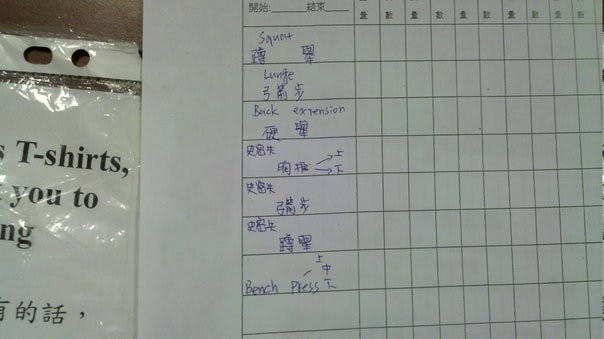 s T-shirts,
you to
ng
有的話，
開始:______結束____
量 數 量 數 量 數 量 數 量 數
Squat
蹲 舉
Lunge
弓箭步
Back extension
硬 舉
史密夫
胸推 上
下
史密夫
弓箭步
史密夫
蹲舉
上
中
Bench Press 下